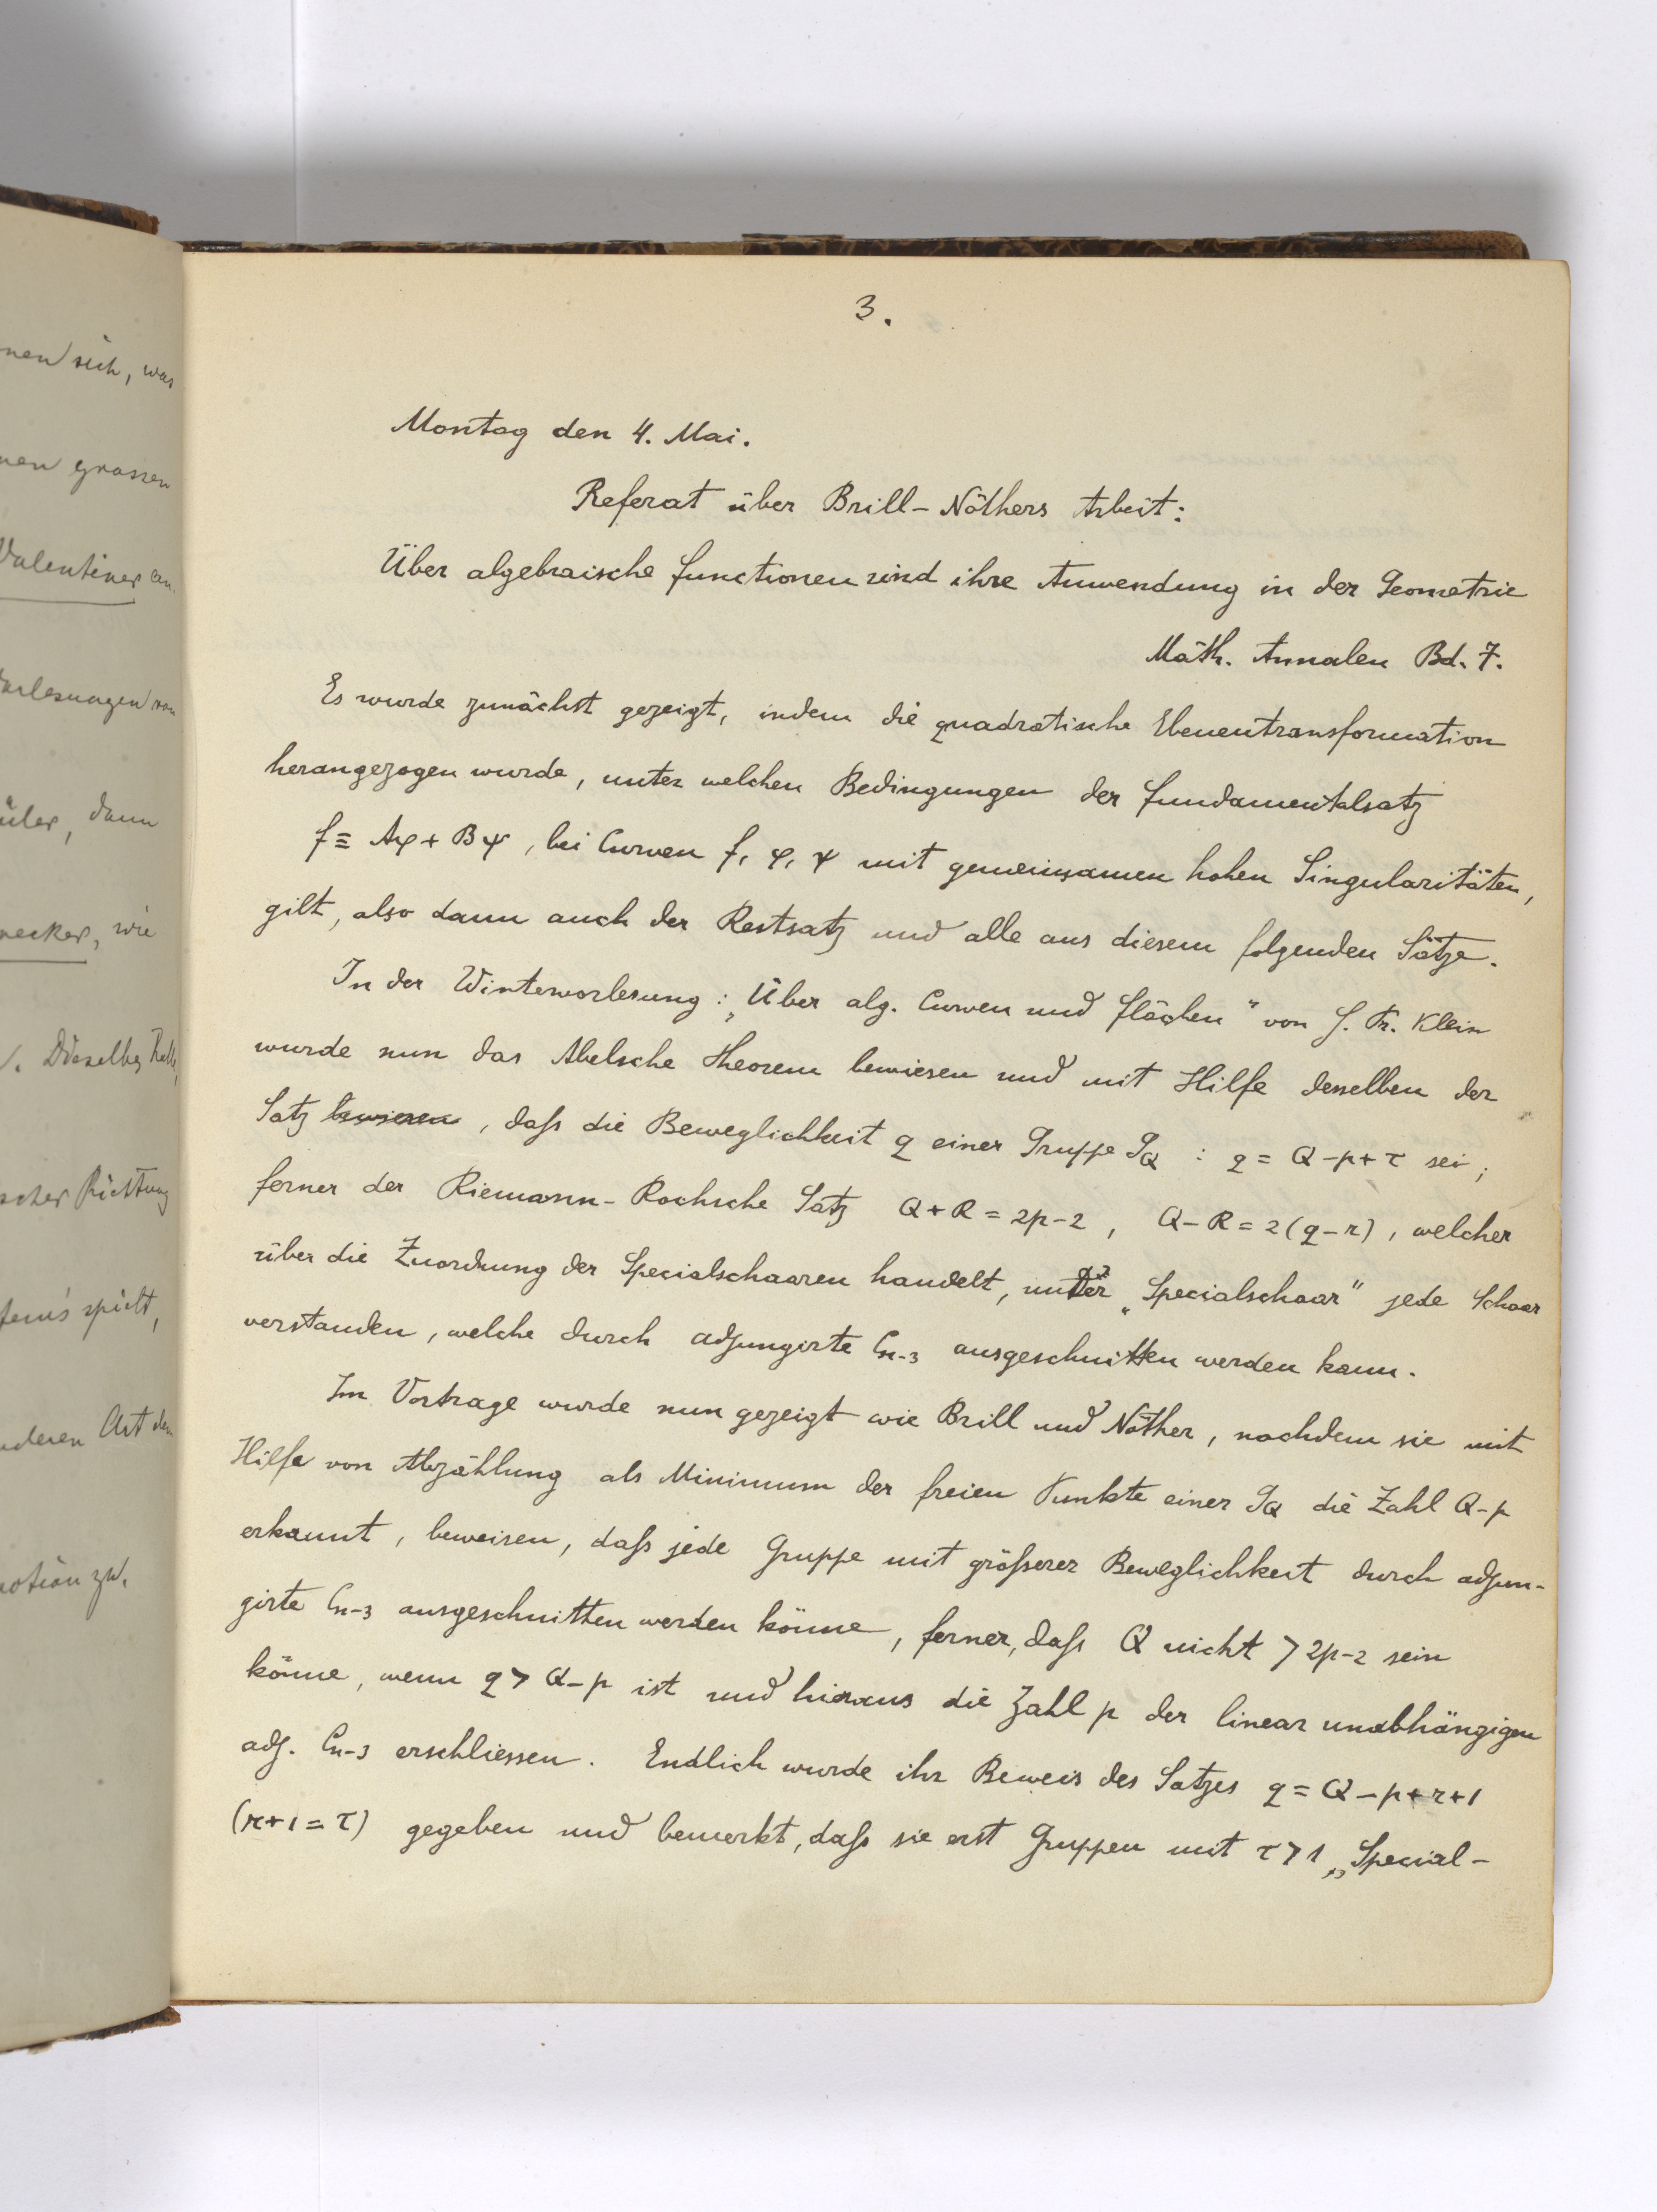 nen sich, was
nen grossen
Valentiner an.
Vorlesungen von
üler, dann
necker, wie
. Dieselbe Rolle,
scher Richtung
spielt,
nderen Art den
otion zu.
3.
Montag den 4. Mai.
Referat über Brill-Nöthers Arbeit:
Über algebraische Functionen und ihre Anwendung in der Geometrie
Math. Annalen Bd. 7.
Es wurde zunächst gezeigt, indem die quadratische Ebenentransformation
herangezogen wurde, unter welchen Bedingungen der Fundamentalsatz
f ≡ Aφ + Bψ, bei Curven f, φ, ψ mit gemeinsamen hohen Singularitäten,
gilt, also dann auch der Restsatz und alle aus diesem folgenden Sätze.
In der Wintervorlesung: „Über alg. Curven und Flächen" von H. Fr. Klein
wurde nun das Abelsche Theorem bewiesen und mit Hilfe desselben der
Satz bewiesen, daſs die Beweglichkeit q einer Gruppe G_Q : q = Q-p+τ sei;
ferner der Riemann-Rochsche Satz Q+R = 2p-2, Q-R = 2(q-r), welcher
über die Zuordnung der Specialschaaren handelt, unter „Specialschaar" jede Schaar
verstanden, welche durch adjungirte C_{n-3} ausgeschnitten werden kann.
Im Vortrage wurde nun gezeigt wie Brill und Nöther, nachdem sie mit
Hilfe von Abzählung als Minimum der freien Punkte einer G_Q die Zahl Q-p
erkannt, beweisen, daſs jede Gruppe mit gröſserer Beweglichkeit durch adjun-
girte C_{n-3} ausgeschnitten werden könne, ferner, daſs Q nicht > 2p-2 sein
könne, wenn q > Q-p ist und hieraus die Zahl p der linear unabhängigen
adj. C_{n-3} erschliessen. Endlich wurde ihr Beweis des Satzes q = Q-p+r+1
(r+1 = τ) gegeben und bemerkt, daſs sie erst Gruppen mit τ > 1 „Special-